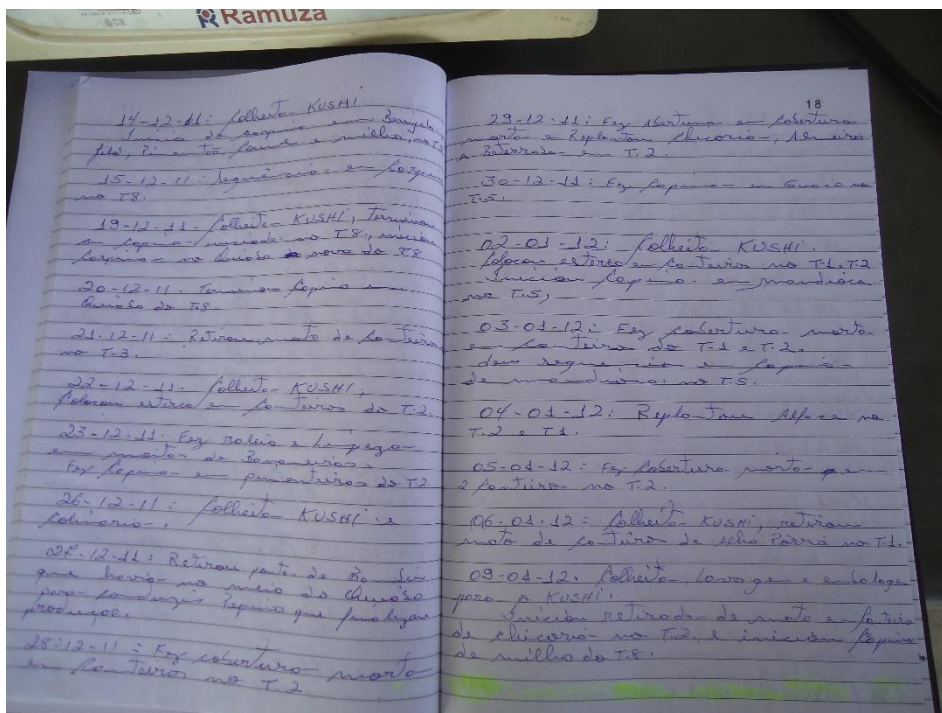 Ramuza
14-12-11: Colheita KUSHI
Início de capina em
e milho, no T.8
15-12-11: Sequência em Capina
no T8.
19-12-11. Colheita KUSHI, Terminou
a capina no T8, iniciou
Capina no quiabo novo do T8
20-12-11. Terminou Capina em
quiabo do T.8
21-12-11: Retirou mato de Canteiros
no T-3.
22-12-11. Colheita KUSHI,
Colocou esterco em Canteiros do T.2.
23-12-11. Fez roleio e Limpeza
em moitas de Bananeiras.
Fez Capina em pimenteiras do T2
26-12-11: Colheita KUSHI e
27-12-11: Retirou
que havia no meio do quiabo
para conduzir Pepino que finalizou
produção.
28-12-11: Fez cobertura morta
em Canteiros no T.2
18
29-12-11: Fez Abertura em Cobertura
morta e Replantou chicória, Almeirão
e Beterraba em T.2.
30-12-11: Fez Capina em no
T-5.
02-01-12: Colheita KUSHI.
Colocou esterco em Canteiros no T-1, T.2
Iniciou Capina em mandioca
no T.5,
03-01-12: Fez cobertura morta
em Canteiros do T-1 e T-2.
deu sequencia em Capina
de mandioca no T.5.
04-01-12: Replantou Alface no
T.2 e T1.
05-01-12: Fez Cobertura morta em
2 Canteiros no T.2.
06.01.12: Colheita KUSHI, retirou
mato de Canteiro de Porró no T-1.
09-01-12. Colheita, Lavagem e embalagem
para a KUSHI.
Iniciou Retirada de mato em Canteiro
de chicória no T.2, e iniciou Capina
de milho do T.8.